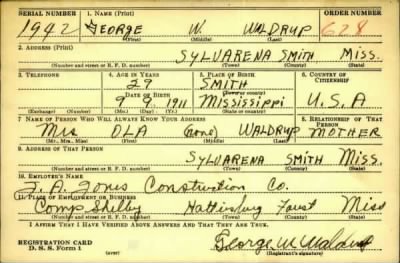 SERIAL NUMBER 1. NAME (Print) ORDER NUMBER
1942 GEORGE W. WALDRUP 628
(First) (Middle) (Last)
2. ADDRESS (Print)
SYLVARENA SMITH MISS.
(Number and street or R. F. D. number) (Town) (County) (State)
3. TELEPHONE 4. AGE IN YEARS 5. PLACE OF BIRTH 6. COUNTRY OF CITIZENSHIP
29 SMITH
(Town or county)
DATE OF BIRTH
9 9 1911 MISSISSIPPI U.S.A
(Exchange) (Number) (Mo.) (Day) (Yr.) (State or country)
7. NAME OF PERSON WHO WILL ALWAYS KNOW YOUR ADDRESS 8. RELATIONSHIP OF THAT PERSON
MRS OLA (none) WALDRUP MOTHER
(Mr., Mrs., Miss) (First) (Middle) (Last)
9. ADDRESS OF THAT PERSON
SYLVARENA SMITH MISS.
(Number and street or R. F. D. number) (Town) (County) (State)
10. EMPLOYER'S NAME
J. A. Jones Construction Co.
11. PLACE OF EMPLOYMENT OR BUSINESS
Camp Shelby Hattiesburg Forest Miss
(Number and street or R. F. D. number) (Town) (County) (State)
I AFFIRM THAT I HAVE VERIFIED ABOVE ANSWERS AND THAT THEY ARE TRUE.
REGISTRATION CARD George W. Waldrup
D. S. S. Form 1 (over) (Registrant's signature)